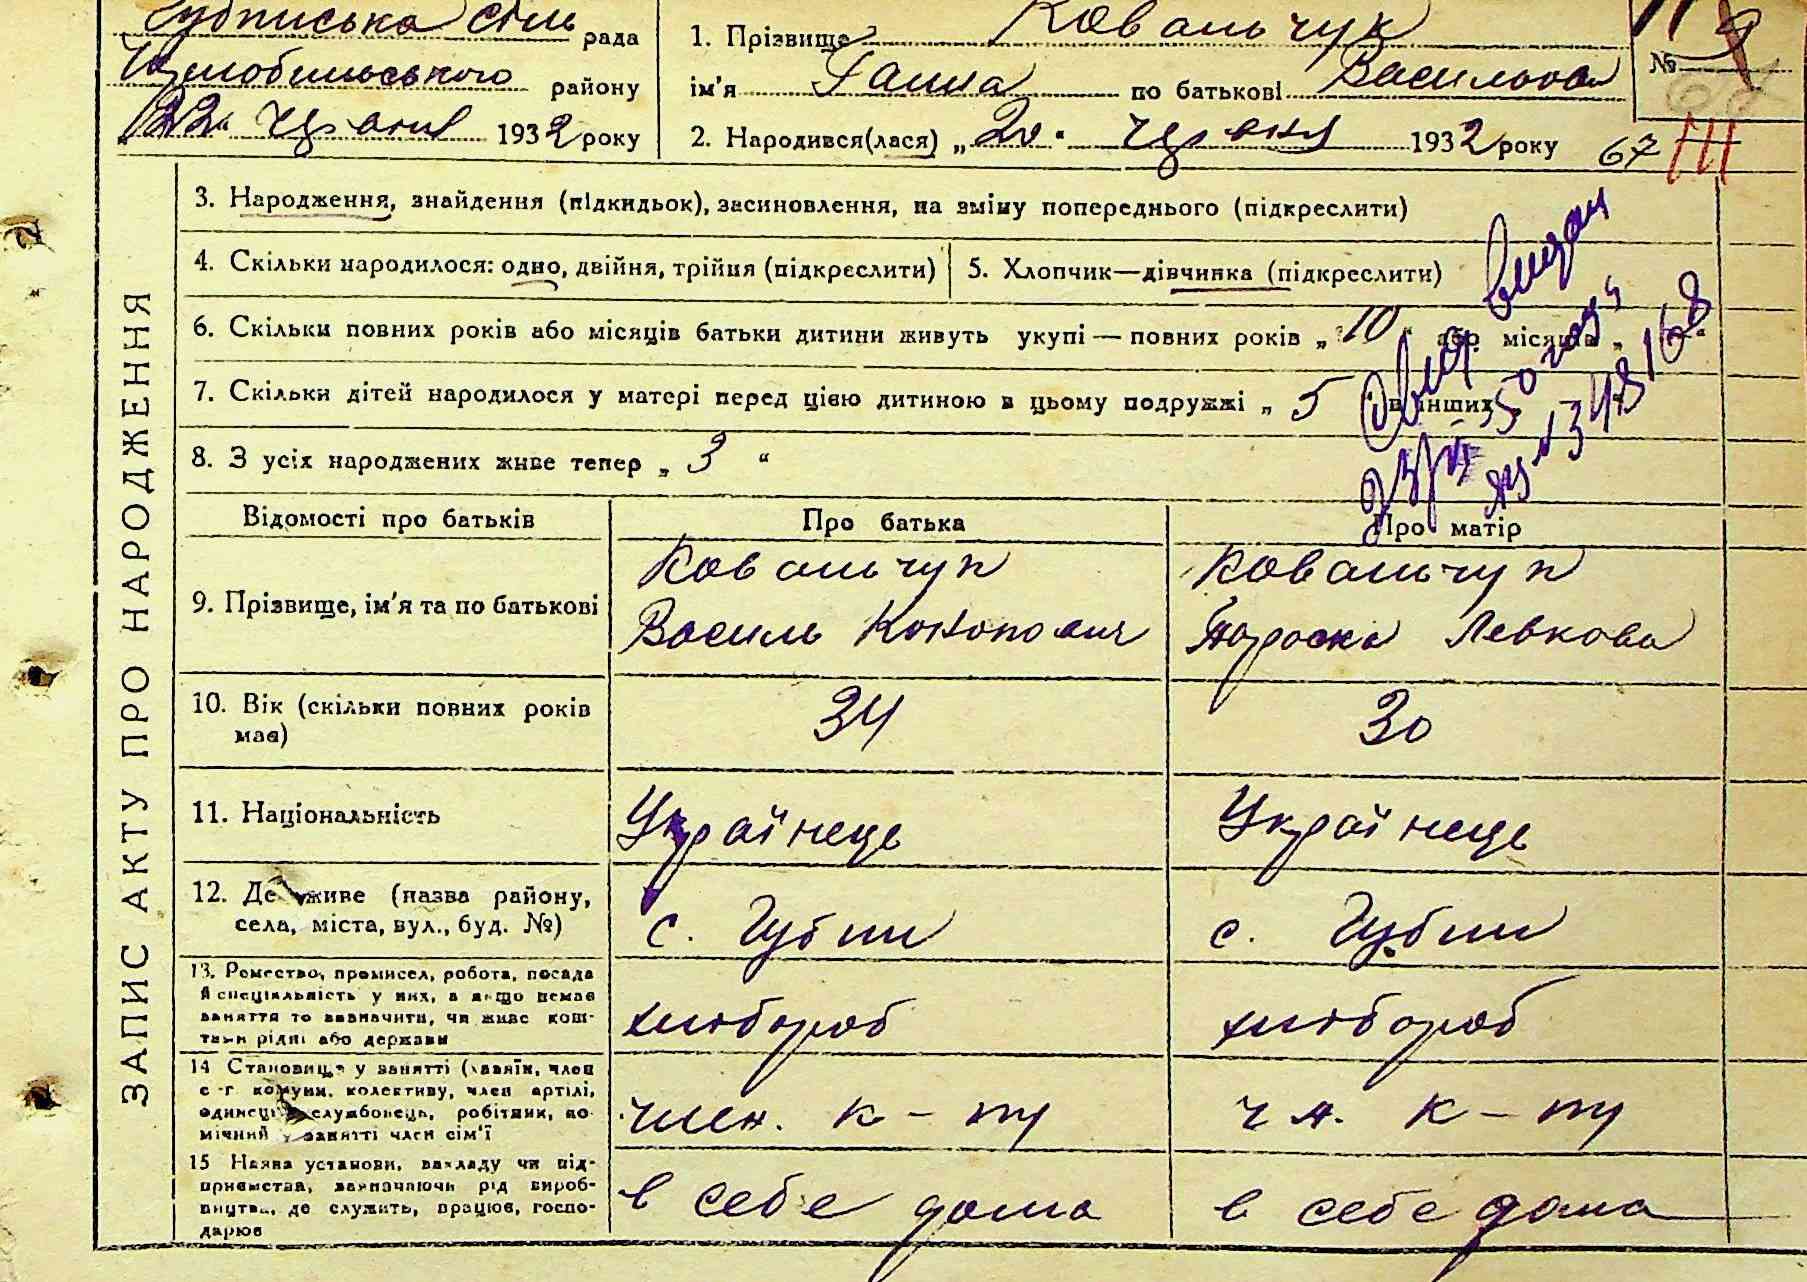 Губинська сіль рада
району
"22" Червня 1932 року
1. Прізвище Ковальчук
ім'я Ганна по батькові Василівна
2. Народився(лася) „20" Червня 1932 року
№ 9
67 III
ЗАПИС АКТУ ПРО НАРОДЖЕННЯ
3. Народження, знайдення (підкидьок), засиновлення, на зміну попереднього (підкреслити)
4. Скільки народилося: одно, двійня, трійня (підкреслити)
5. Хлопчик—дівчинка (підкреслити)
6. Скільки повних років або місяців батьки дитини живуть укупі — повних років „10" або місяців „ "
7. Скільки дітей народилося у матері перед цією дитиною в цьому подружжі „ 5 в інших „
8. З усіх народжених живе тепер „ 3 "
Відомості про батьків
Про батька
Про матір
9. Прізвище, ім'я та по батькові
Ковальчук
Василь Кононович
Ковальчук
Параска Левкова
10. Вік (скільки повних років має)
34
30
11. Національність
Українець
Українець
12. Де живе (назва району,
села, міста, вул., буд. №)
с. Губин
с. Губин
13. Ремество, промисел, робота, посада
й спеціальність у них, а якщо немає
заняття то зазначити, чи живе кош-
тами рідні або держави
хлібороб
хлібороб
14 Становище у занятті (хазяїн, член
с-г комуни, колективу, член артілі,
одинець службовець, робітник, по-
мічний у занятті член сім'ї
член. к-ту
чл. к-ту
15 Назва установи, закладу чи під-
приємства, зазначаючи рід вироб-
ництва, де служить, працює, госпо-
дарює
в себе дома
в себе дома